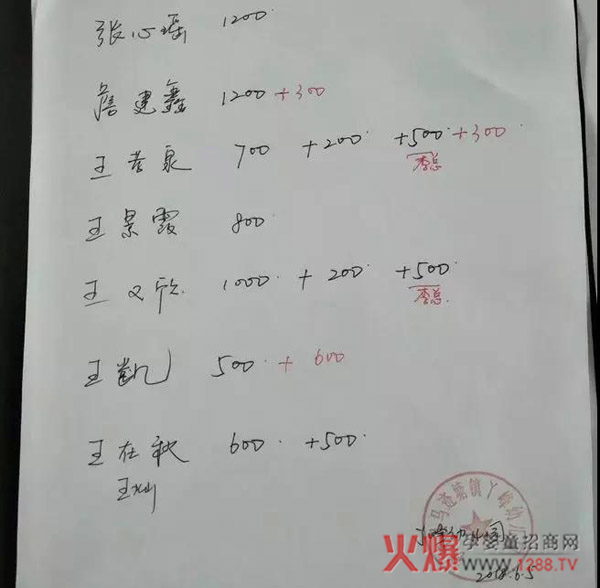 张心瑶 1200.
詹建鑫 1200 +300
王若泉 700 +200. +500. +300
李总
王景霞 800.
王义欣 1000. + 200. +500.
李总.
王凯 500. + 600
王在秋 600. +500.
王灿
马迹塘镇丫峰幼儿园
丫峰幼儿园
2018.6.5
火爆孕婴童招商网
www.1288.TV